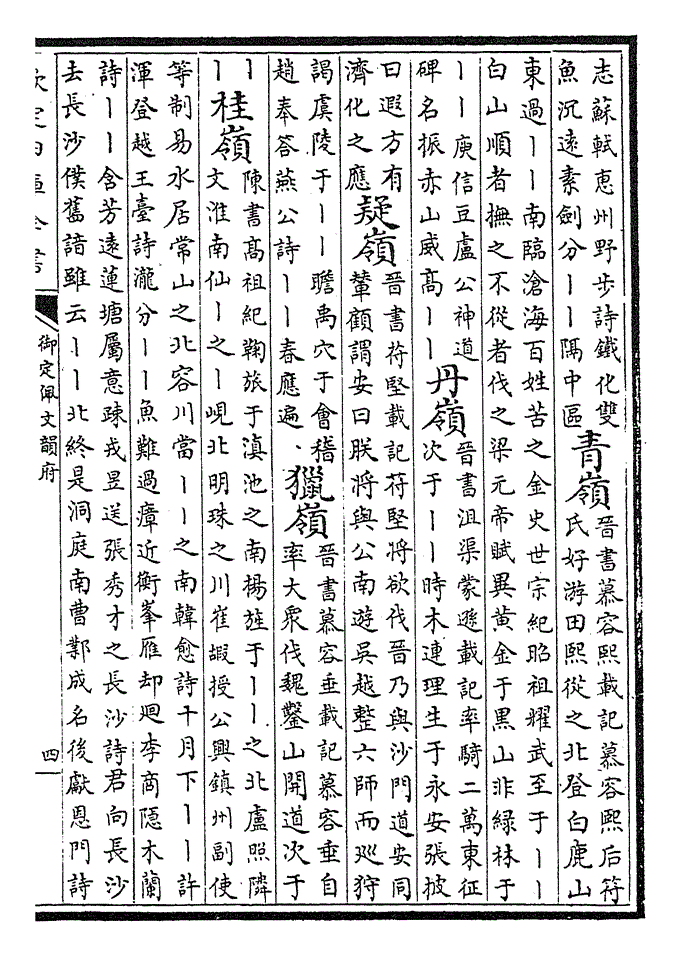 志蘇軾惠州野步詩鐵化雙
魚沉遠素劍分丨丨隅中區
青嶺
晉書慕容熙載記慕容熙后苻
氏好游田熙從之北登白鹿山
東過丨丨南臨滄海百姓苦之金史世宗紀昭祖耀武至于丨丨
白山順者撫之不從者伐之梁元帝賦異黄金于黑山非緑林于
丨丨庾信豆盧公神道
碑名振赤山威高丨丨
丹嶺
晉書沮渠蒙遜載記率騎二萬東征
次于丨丨時木連理生于永安張披
曰遐方有
濟化之應
疑嶺
晉書苻堅載記苻堅將欲伐晉乃與沙門道安同
輦顧謂安曰朕將與公南遊吳越整六師而廵狩
謁虞陵于丨丨瞻禹穴于會稽
趙奉答燕公詩丨丨春應遍、
獵嶺
晉書慕容垂載記慕容垂自
率大衆伐魏鑿山開道次于
丨
丨
桂嶺
陳書高祖紀鞠旅于滇池之南楊旌于丨丨之北盧照隣
文淮南仙丨之丨峴北明珠之川崔嘏授公興鎮州副使
等制易水居常山之北容川當丨丨之南韓愈詩十月下丨丨許
渾登越王臺詩瀧分丨丨魚難過瘴近衡峯雁却廻李商隱木蘭
詩丨丨含芳遠蓮塘屬意疎戎昱送張秀才之長沙詩君向長沙
去長沙僕舊諳雖云丨丨北終是洞庭南曹鄴成名後獻恩門詩
欽定四庫全書
御定佩文韻府
四